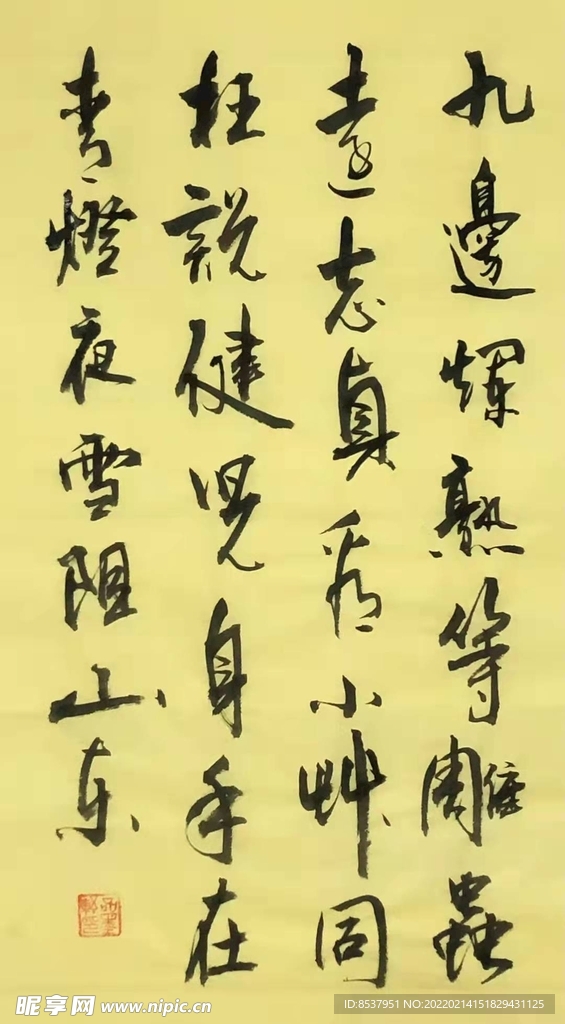 九邊爛熟等雕蟲
遠志真看小艸同
枉說健兒身手在
青燈夜雪阻山東
昵享网 www.nipic.cn
ID:8537951 NO:20220214151829431125